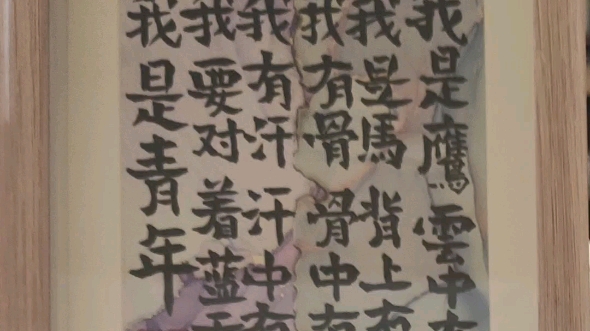 我是鷹雲中有
我是馬背上有
我有骨骨中有
我有汗汗中有
我要对着蓝天
我是青年